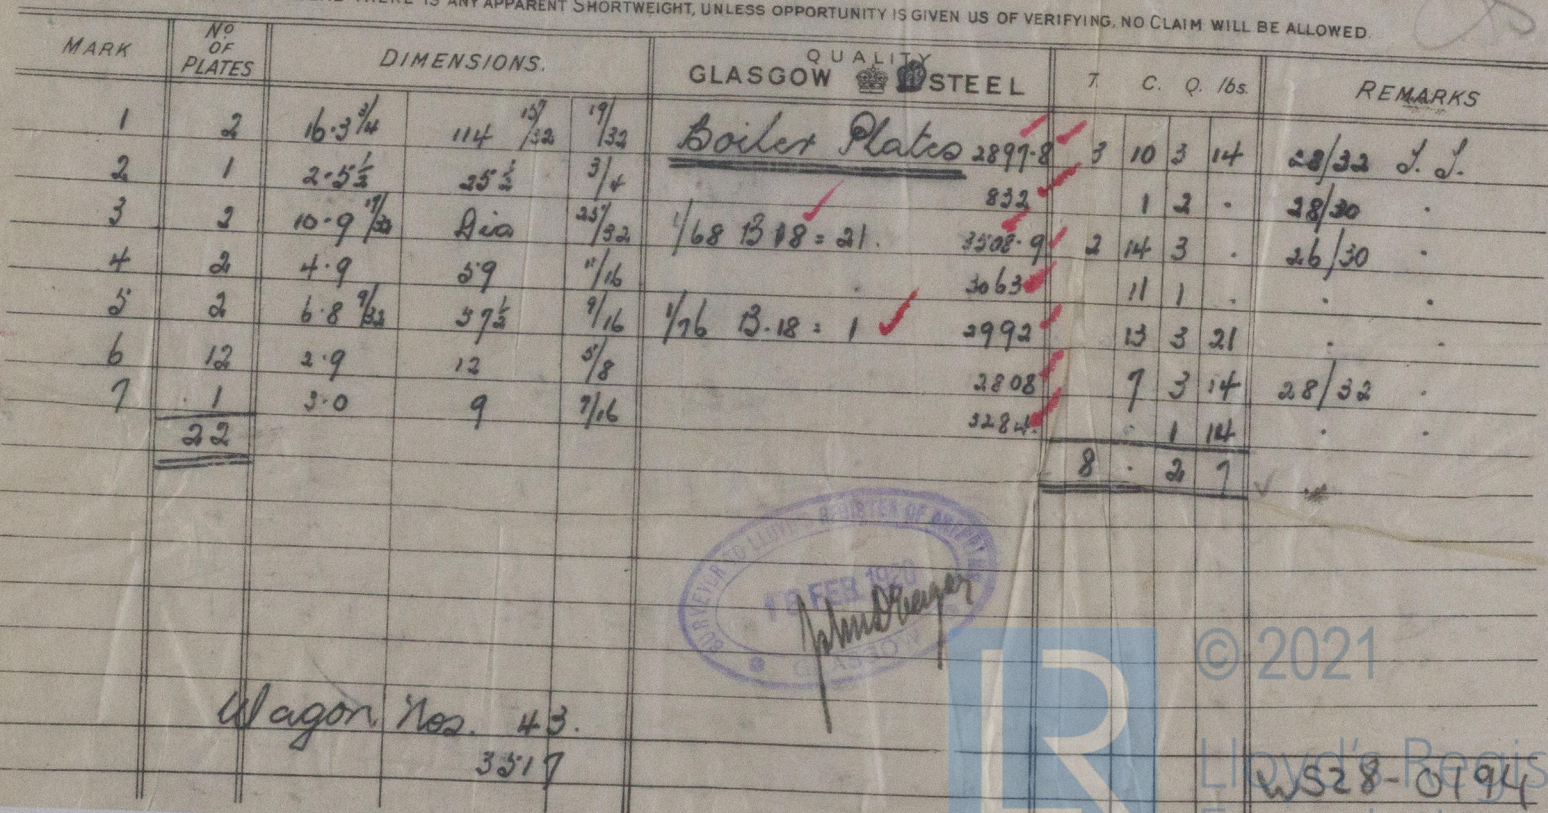 THERE IS ANY APPARENT SHORTWEIGHT, UNLESS OPPORTUNITY IS GIVEN US OF VERIFYING, NO CLAIM WILL BE ALLOWED.
MARK Nº OF PLATES DIMENSIONS. QUALITY GLASGOW STEEL T. C. Q. lbs. REMARKS
1 2 16·3 3/4 114 15/32 19/32 Boiler Plates 2897·8 3 10 3 14 28/32 J. J.
2 1 2·5 1/2 25 1/2 3/4 832 1 2 · 28/30 ·
3 2 10·9 17/32 Dia 25/32 1/68 B 18 = 21. 3508·9 2 14 3 · 26/30 ·
4 2 4·9 59 11/16 3063 11 1 · · ·
5 2 6·8 9/32 37 1/2 9/16 1/76 B·18 = 1 2992 13 3 21 · ·
6 12 2·9 12 5/8 2808 7 3 14 28/32 ·
7 1 3·0 9 7/16 3284 · 1 14 · ·
22 8 · 2 7
SURVEYER TO LLOYD'S REGISTER OF SHIPPING
18 FEB 1920
GLASGOW
Wagon Nos. 43.
3517
© 2021
Lloyd's Regis
WS28-0194